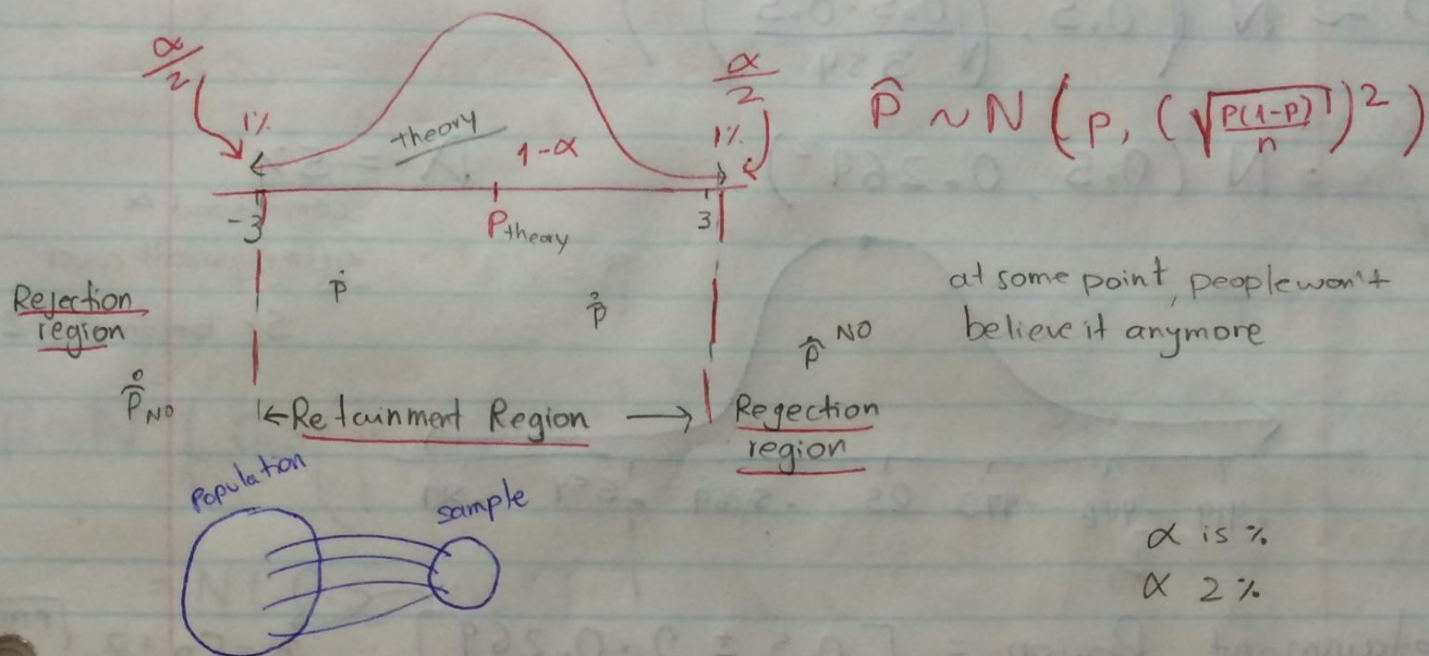 α/2
1%
theory
1-α
α/2
1%
P̂ ~ N (p, (√P(1-P)/n)²)
-3
P theory
3
Rejection
region
p̂
p̂
at some point, people won't
believe it anymore
p̂ NO
p̂ NO
|← Retainment Region →
Regection
region
Population
sample
α is %
α 2 %